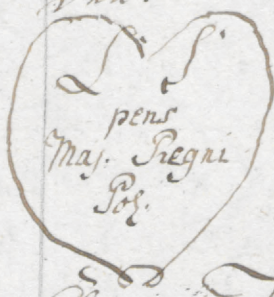 L. S.
pens
Maj. Regni
Pol.